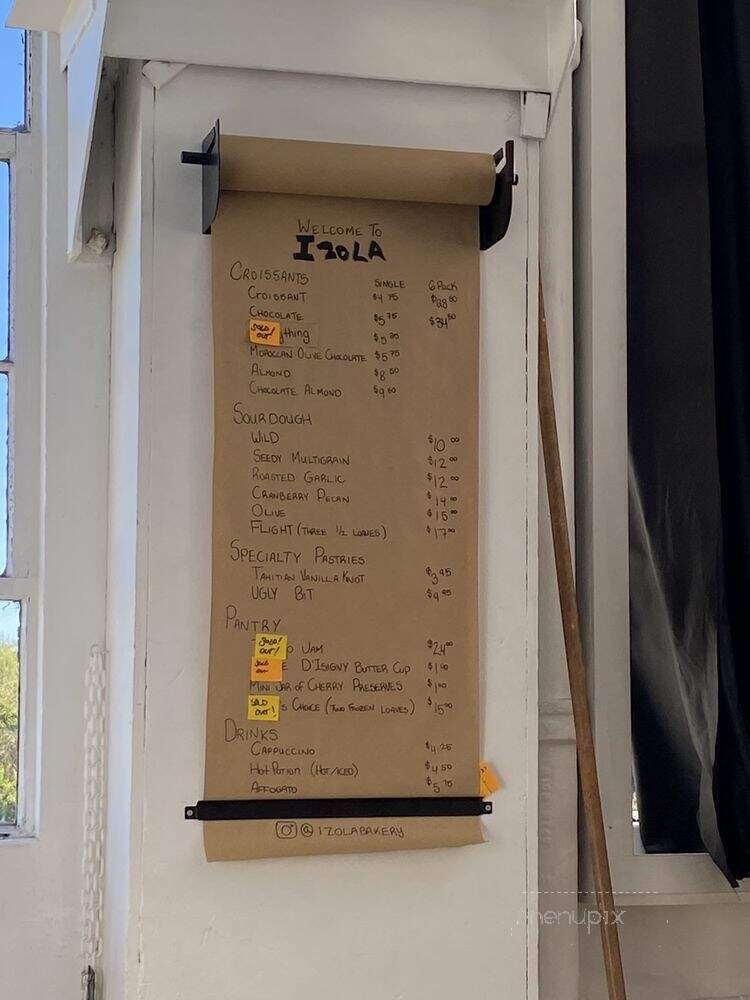 WELCOME TO
IZOLA
CROISSANTS SINGLE 6 PACK
CROISSANT $4 75 $28 50
CHOCOLATE $5 75 $34 50
SOLD OUT! thing
MOROCCAN OLIVE CHOCOLATE $5 75
ALMOND $8 50
CHOCOLATE ALMOND $9 50
SOURDOUGH
WILD $10 00
SEEDY MULTIGRAIN $12 00
ROASTED GARLIC $12 00
CRANBERRY PECAN $14 00
OLIVE $15 00
FLIGHT (THREE 1/2 LOAVES) $17 00
SPECIALTY PASTRIES
TAHITIAN VANILLA KNOT $3 95
UGLY BIT $4 95
PANTRY
SOLD OUT! O JAM $24 00
SOLD OUT E D'ISIGNY BUTTER CUP $1 00
MINI JAR OF CHERRY PRESERVES $1 00
SOLD OUT! S CHOICE (TWO FROZEN LOAVES) $15 00
DRINKS
CAPPUCCINO $4 25
HOT POTION (HOT/ICED) $4 50
AFFOGATO $5 75
@IZOLABAKERY
menupix